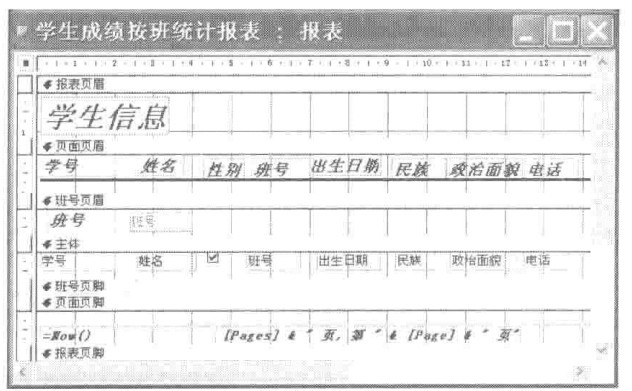 学生成绩按班统计报表 : 报表
· 1 · 1 · 1 · 2 · 1 · 3 · 1 · 4 · 1 · 5 · 1 · 6 · 1 · 7 · 1 · 8 · 1 · 9 · 1 · 10 · 1 · 11 · 1 · 12 · 1 · 13 · 1 · 14
报表页眉
学生信息
1
页面页眉
学号 姓名 性别 班号 出生日期 民族 政治面貌 电话
班号页眉
班号 班号
主体
学号 姓名 班号 出生日期 民族 政治面貌 电话
班号页脚
页面页脚
=Now() [Pages] & " 页, 第 " & [Page] & " 页"
报表页脚